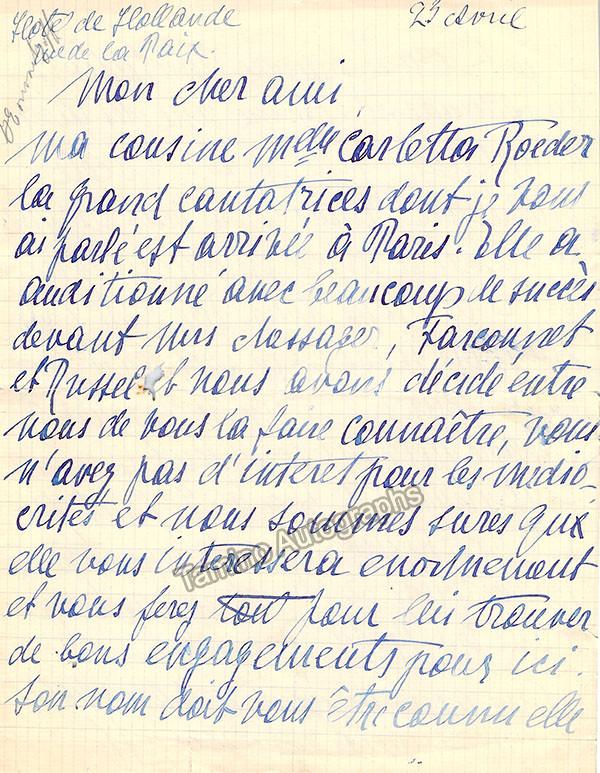 Hotel de Hollande 23 Avril
rue de la Paix.
Mon cher ami
ma cousine Melle Carlotta Roeder
la grand cantatrices dont je vous
ai parlé est arrivée à Paris. Elle a
auditionné avec beaucoup de succès
devant Mrs Massager, Farconnet
et Russel et nous avons décidé entre
nous de vous la faire connaître, vous
n'avez pas d'interet pour les medio-
crités et nous sommes sures qu'
elle vous interessera enormement
et vous ferez tout pour lui trouver
de bons engagements pour ici.
Son nom doit vous être connu elle
Tamino Autographs